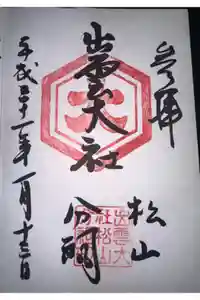 奉拝
出雲大社
松山
分祠
平成三十一年一月十三日
出雲大
社松山
分祠